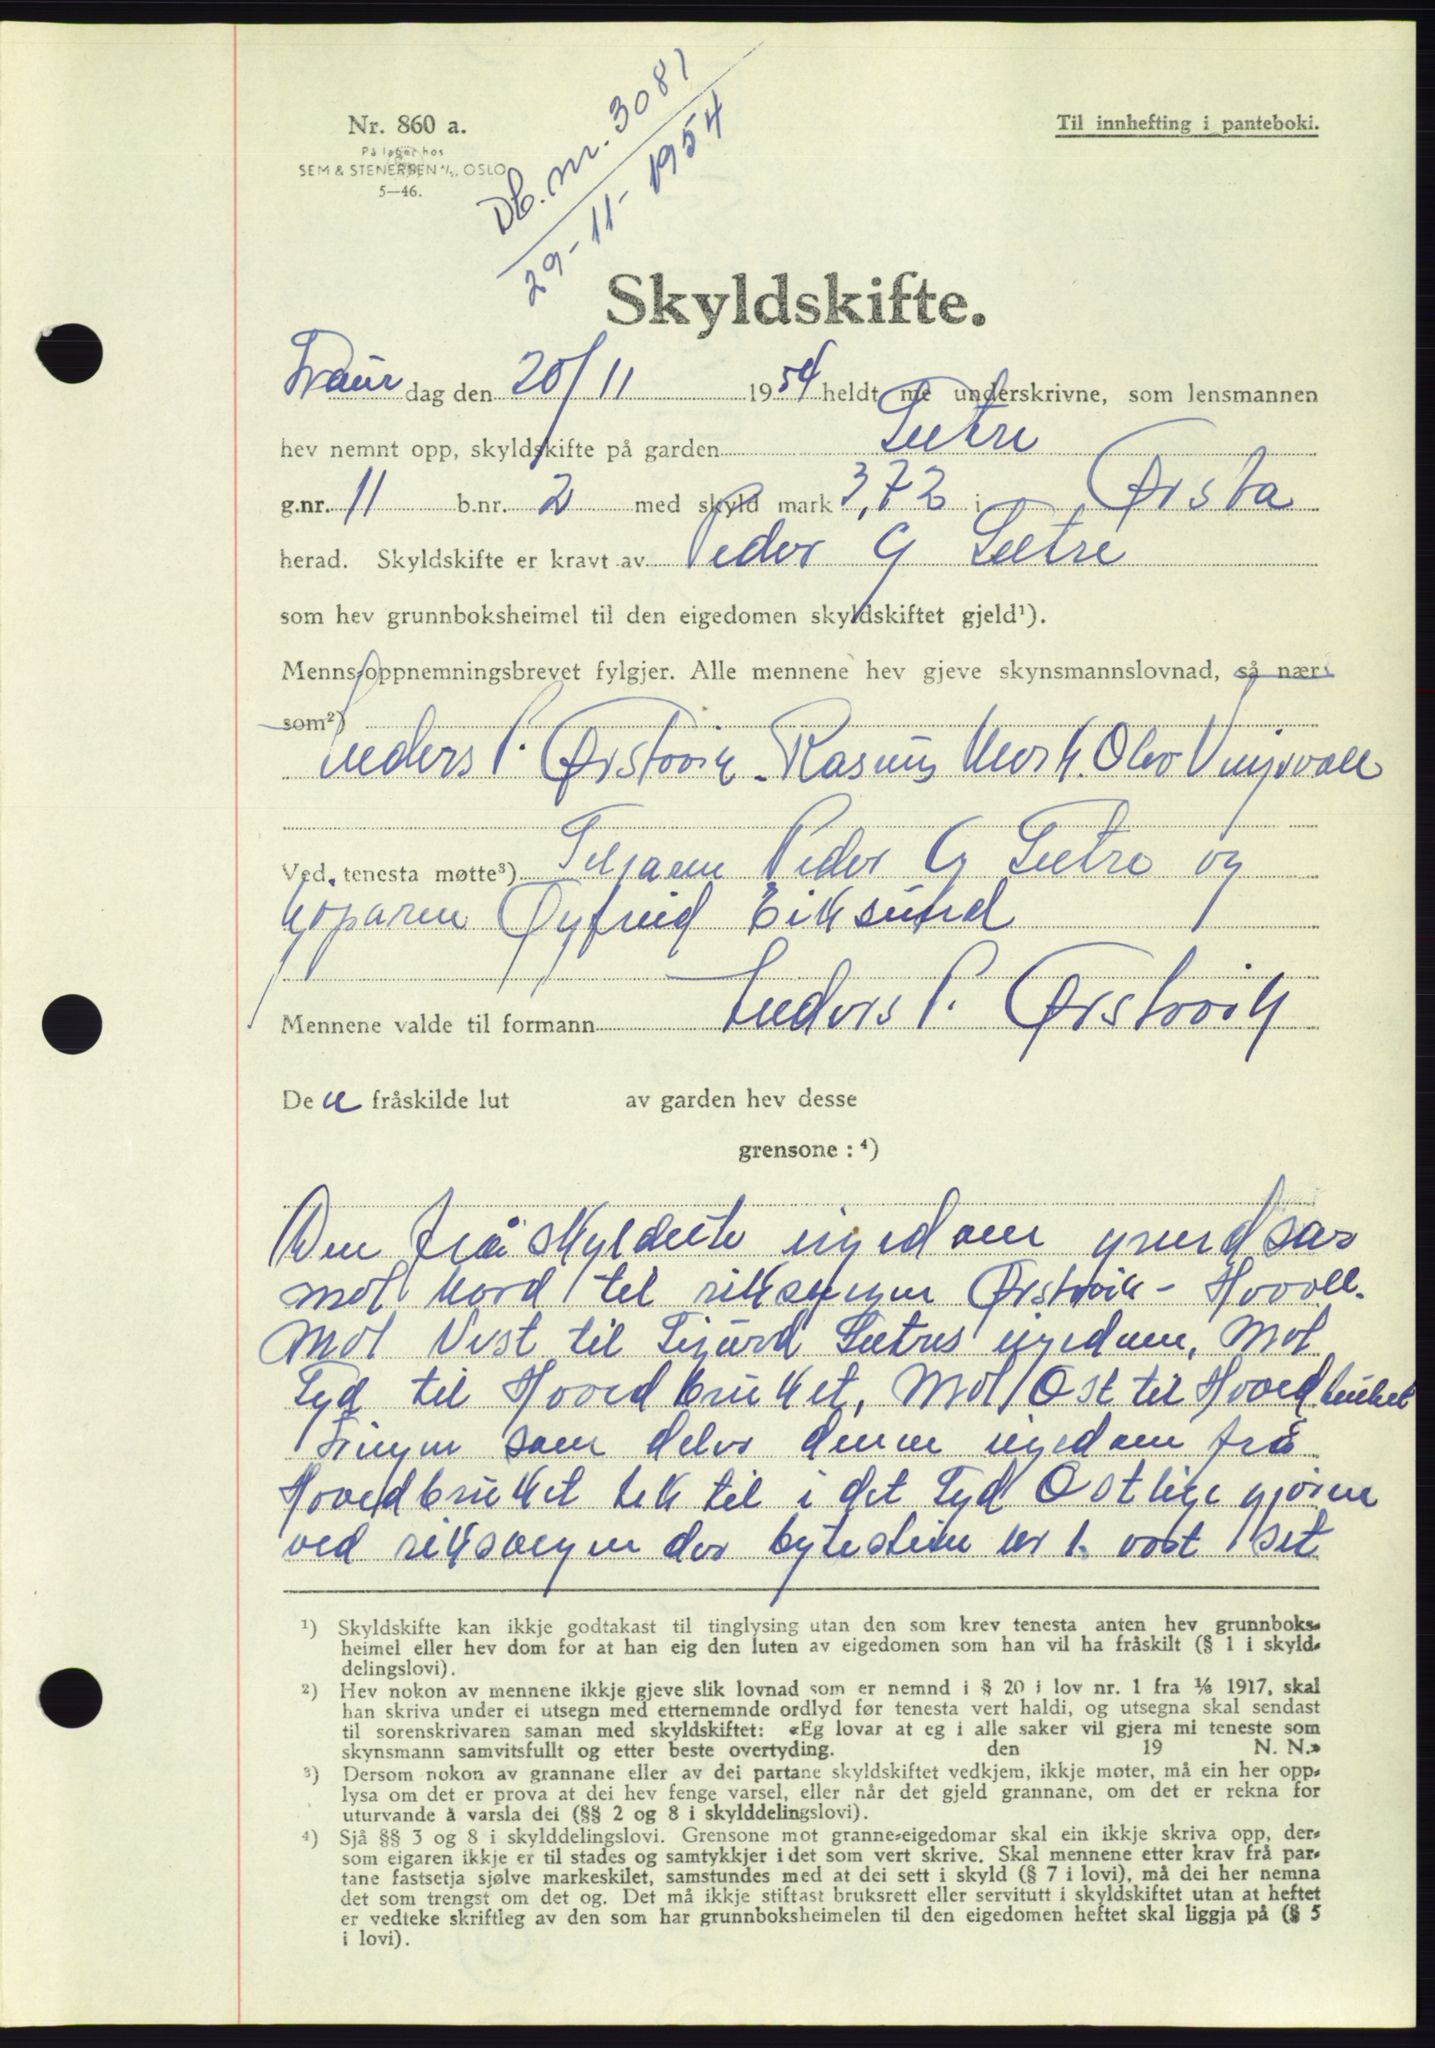 Nr. 860 a.
På lager hos
SEM & STENERSEN A/S, OSLO
5—46.
Til innhefting i panteboki.
Db. nr. 3081
29-11-1954
Skyldskifte.
Laur dag den 20/11 1954 heldt me underskrivne, som lensmannen
hev nemnt opp, skyldskifte på garden Sætre
g.nr. 11 b.nr. 2 med skyld mark 3,72 i Ørsta
herad. Skyldskifte er kravt av Peder G Sætre
som hev grunnboksheimel til den eigedomen skyldskiftet gjeld¹).
Menns-oppnemningsbrevet fylgjer. Alle mennene hev gjeve skynsmannslovnad, så nær
som²)
Anders P. Ørstavik. Rasmus Mork. Olav
Ved tenesta møtte³) Seljaren Peder G Sætre og
kjøparen Øyfrid Eiksund
Mennene valde til formann Anders P. Ørstavik
De n fråskilde lut av garden hev desse
grensone : ⁴)
Den fråskyldeste eigedom grensar
mot Nord til riksvegen Ørstavik - Hovd.
Mot Vest til Sigurd Sætres eigedom, Mot
Syd til Hovedbruket, Mot Ost til Hovedbruket
som deler denne eigedom frå
Hovedbruket tek til i det Syd Ostlige
ved riksvegen der bytestein nr 1. vart set
¹) Skyldskifte kan ikkje godtakast til tinglysing utan den som krev tenesta anten hev grunnboks-
heimel eller hev dom for at han eig den luten av eigedomen som han vil ha fråskilt (§ 1 i skyld-
delingslovi).
²) Hev nokon av mennene ikkje gjeve slik lovnad som er nemnd i § 20 i lov nr. 1 fra 1/6 1917, skal
han skriva under ei utsegn med etternemnde ordlyd før tenesta vert haldi, og utsegna skal sendast
til sorenskrivaren saman med skyldskiftet: «Eg lovar at eg i alle saker vil gjera mi teneste som
skynsmann samvitsfullt og etter beste overtyding. den 19 N. N.»
³) Dersom nokon av grannane eller av dei partane skyldskiftet vedkjem, ikkje møter, må ein her opp-
lysa om det er prova at dei hev fenge varsel, eller når det gjeld grannane, om det er rekna for
uturvande å varsla dei (§§ 2 og 8 i skylddelingslovi).
⁴) Sjå §§ 3 og 8 i skylddelingslovi. Grensone mot granne-eigedomar skal ein ikkje skriva opp, der-
som eigaren ikkje er til stades og samtykkjer i det som vert skrive. Skal mennene etter krav frå par-
tane fastsetja sjølve markeskilet, samstundes med at dei sett i skyld (§ 7 i lovi), må dei her nemna
det som trengst om det og. Det må ikkje stiftast bruksrett eller servitutt i skyldskiftet utan at heftet
er vedteke skriftleg av den som har grunnboksheimelen til den eigedomen heftet skal liggja på (§ 5
i lovi).